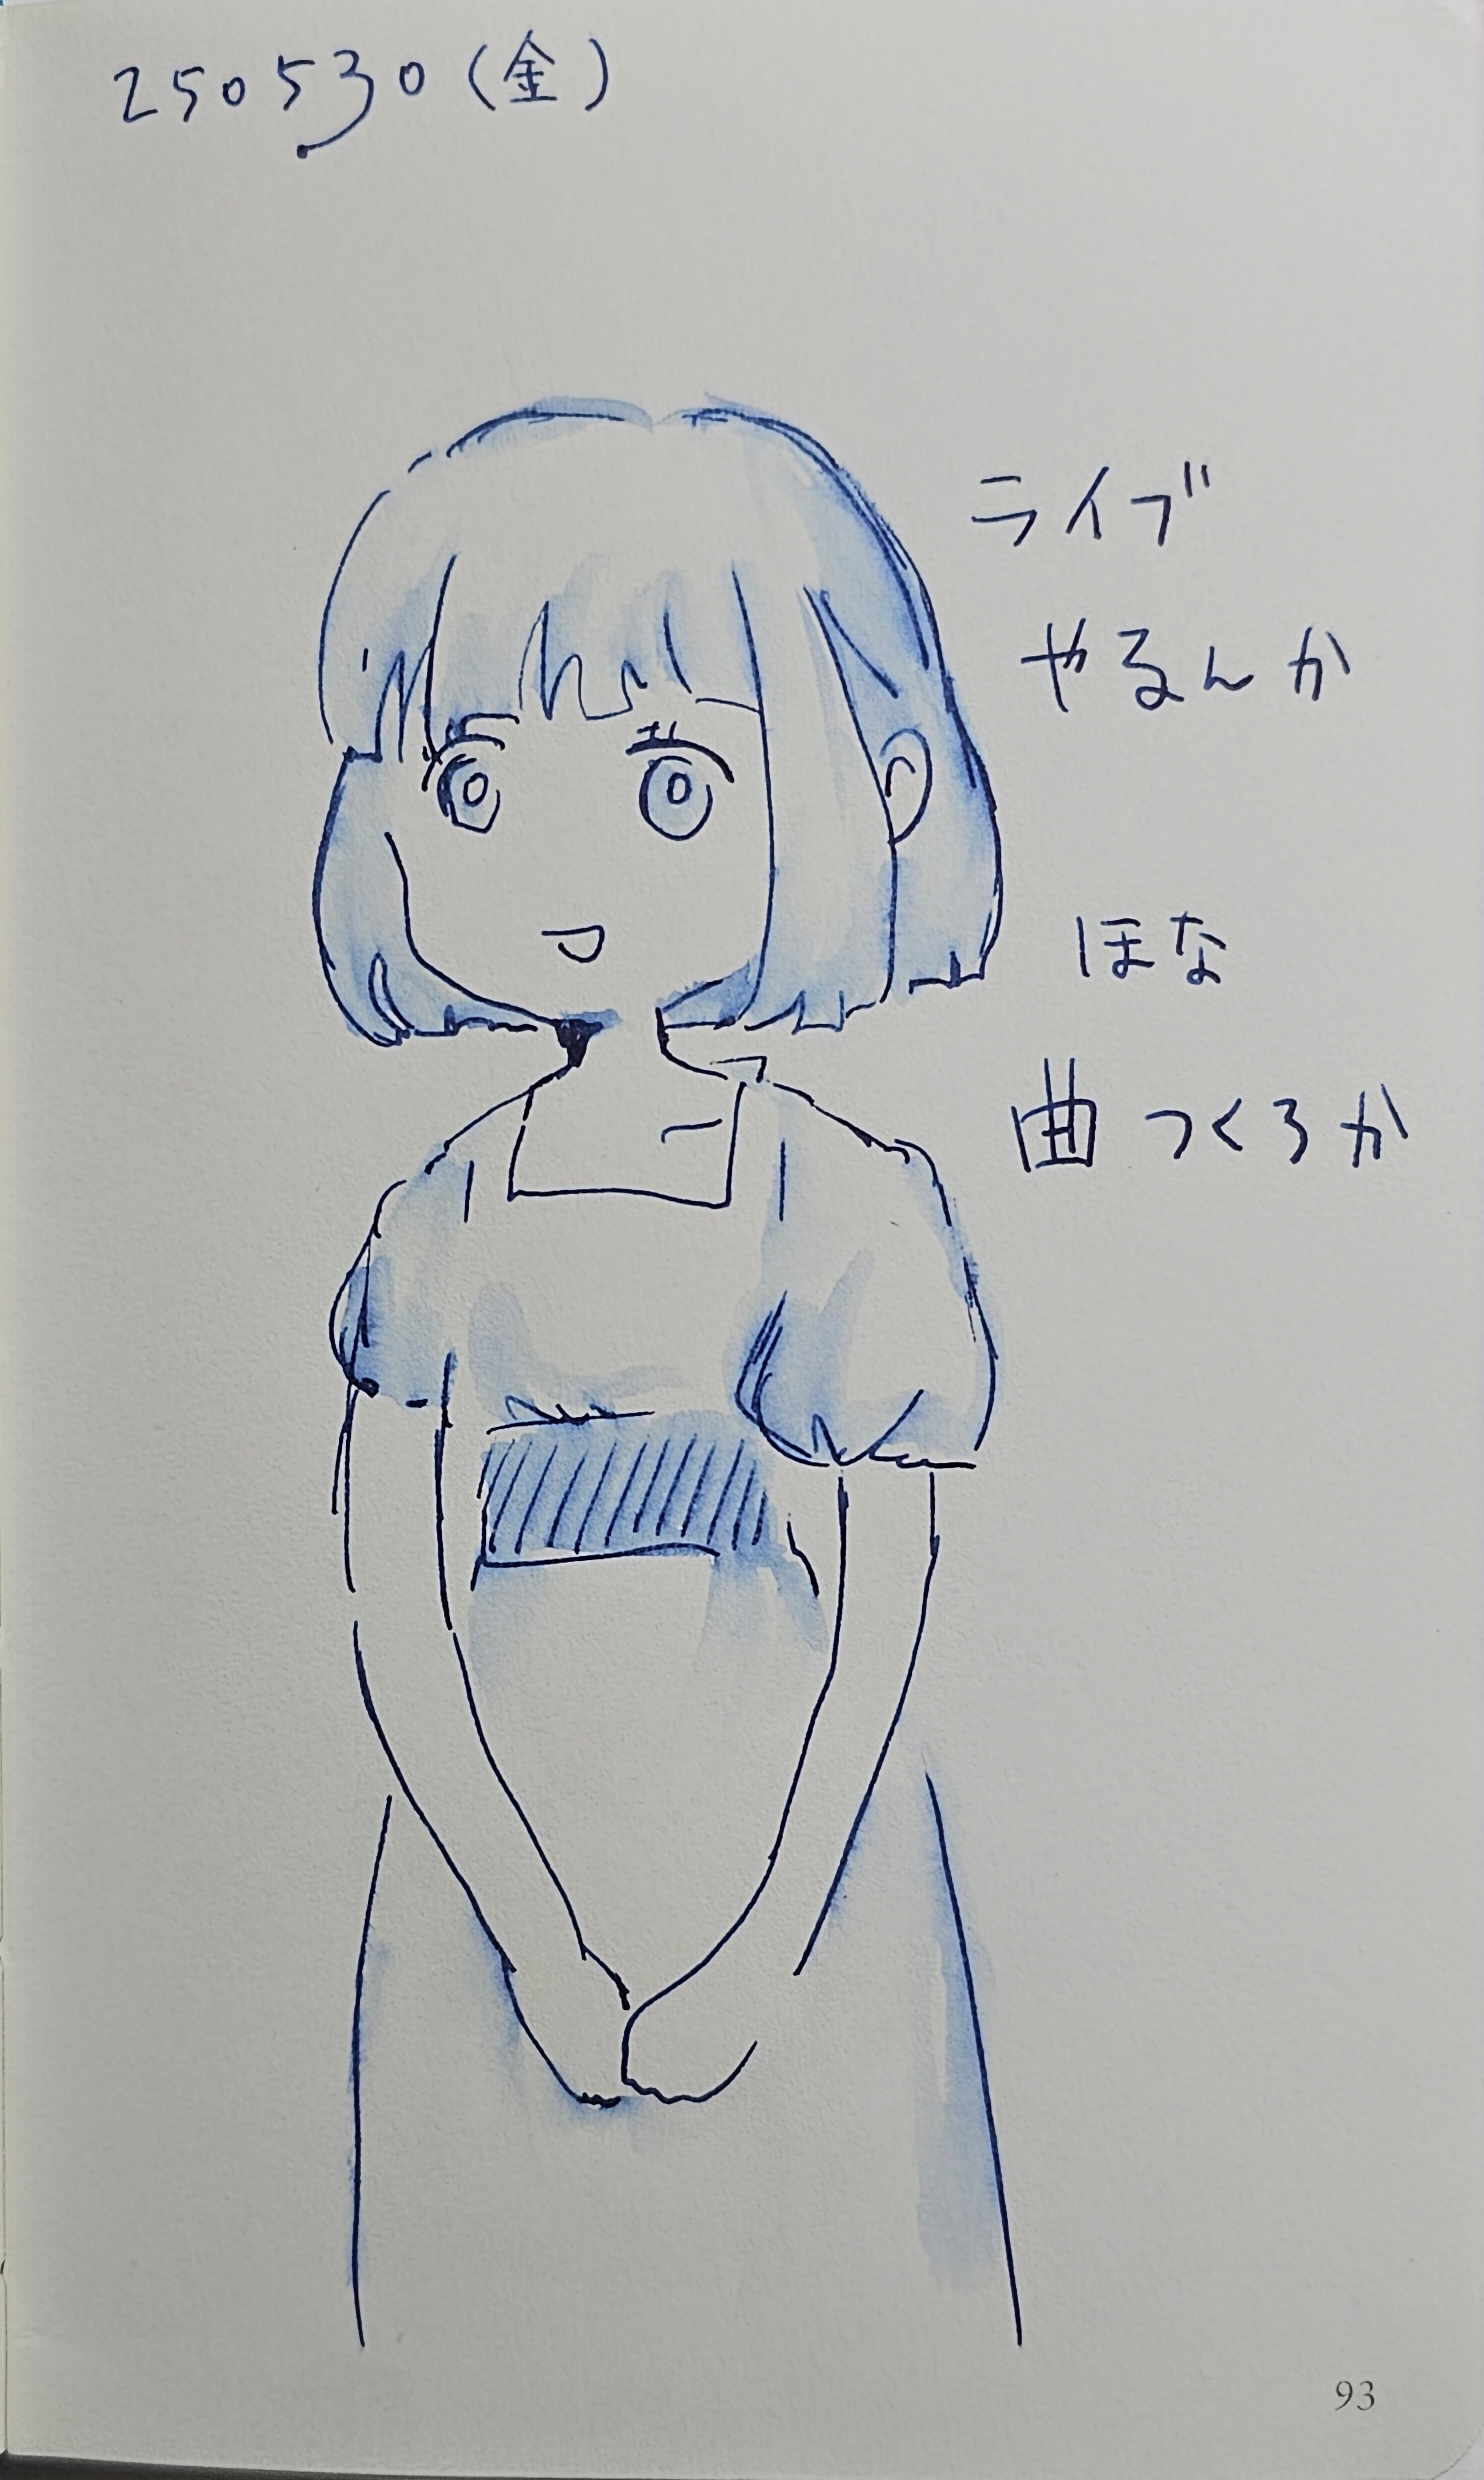 250530(金)
ライブ
やるんか
ほな
曲つくろか
93